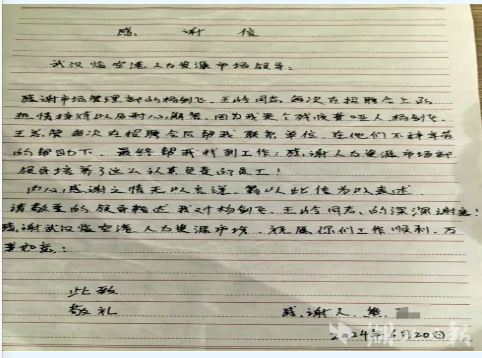 感谢信
武汉临空港人力资源市场领导：
感谢市场管理部的杨剑飞、王岭同志，每次在招聘会上的
热情接待以及耐心解答，因为我是个残疾聋哑人，杨剑飞、
王岭等每次在招聘会后帮我联系单位，在他们不辞辛苦
的帮助下，最终帮我找到工作；感谢人力资源市场部
领导培养了这么认真负责的员工！
内心感谢之情无以言述，篇以此信为以表述
请敬重的领导转达我对杨剑飞、王岭同志的深深谢意！
感谢武汉临空港人力资源市场，祝愿你们工作顺利，万
事如意！
此致
敬礼
感谢人：熊
2024年6月20日